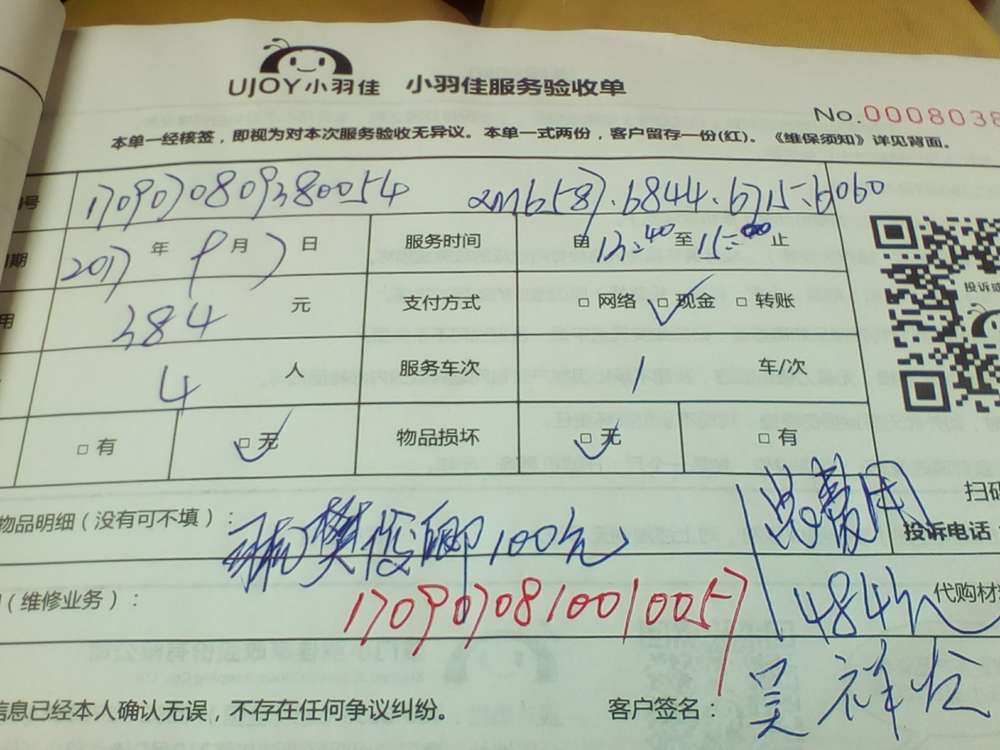 UJOY小羽佳 小羽佳服务验收单
No.0008038
本单一经核签，即视为对本次服务验收无异议。本单一式两份，客户留存一份(红)。《维保须知》详见背面。
号 1709070809380054 6587.6844.6715.6060
期 2017 年 9 月 7 日 服务时间 自 13:40 至 15:00 止
用 384 元 支付方式 □ 网络 □ 现金 □ 转账
投诉或
4 人 服务车次 1 车/次
□ 有 □ 无 物品损坏 □ 无 □ 有
扫码
物品明细（没有可不填）： 司机樊俊卿100元 总费用
投诉电话
（维修业务）： 1709070810010057 484元 代购材料
信息已经本人确认无误，不存在任何争议纠纷。 客户签名： 吴祥